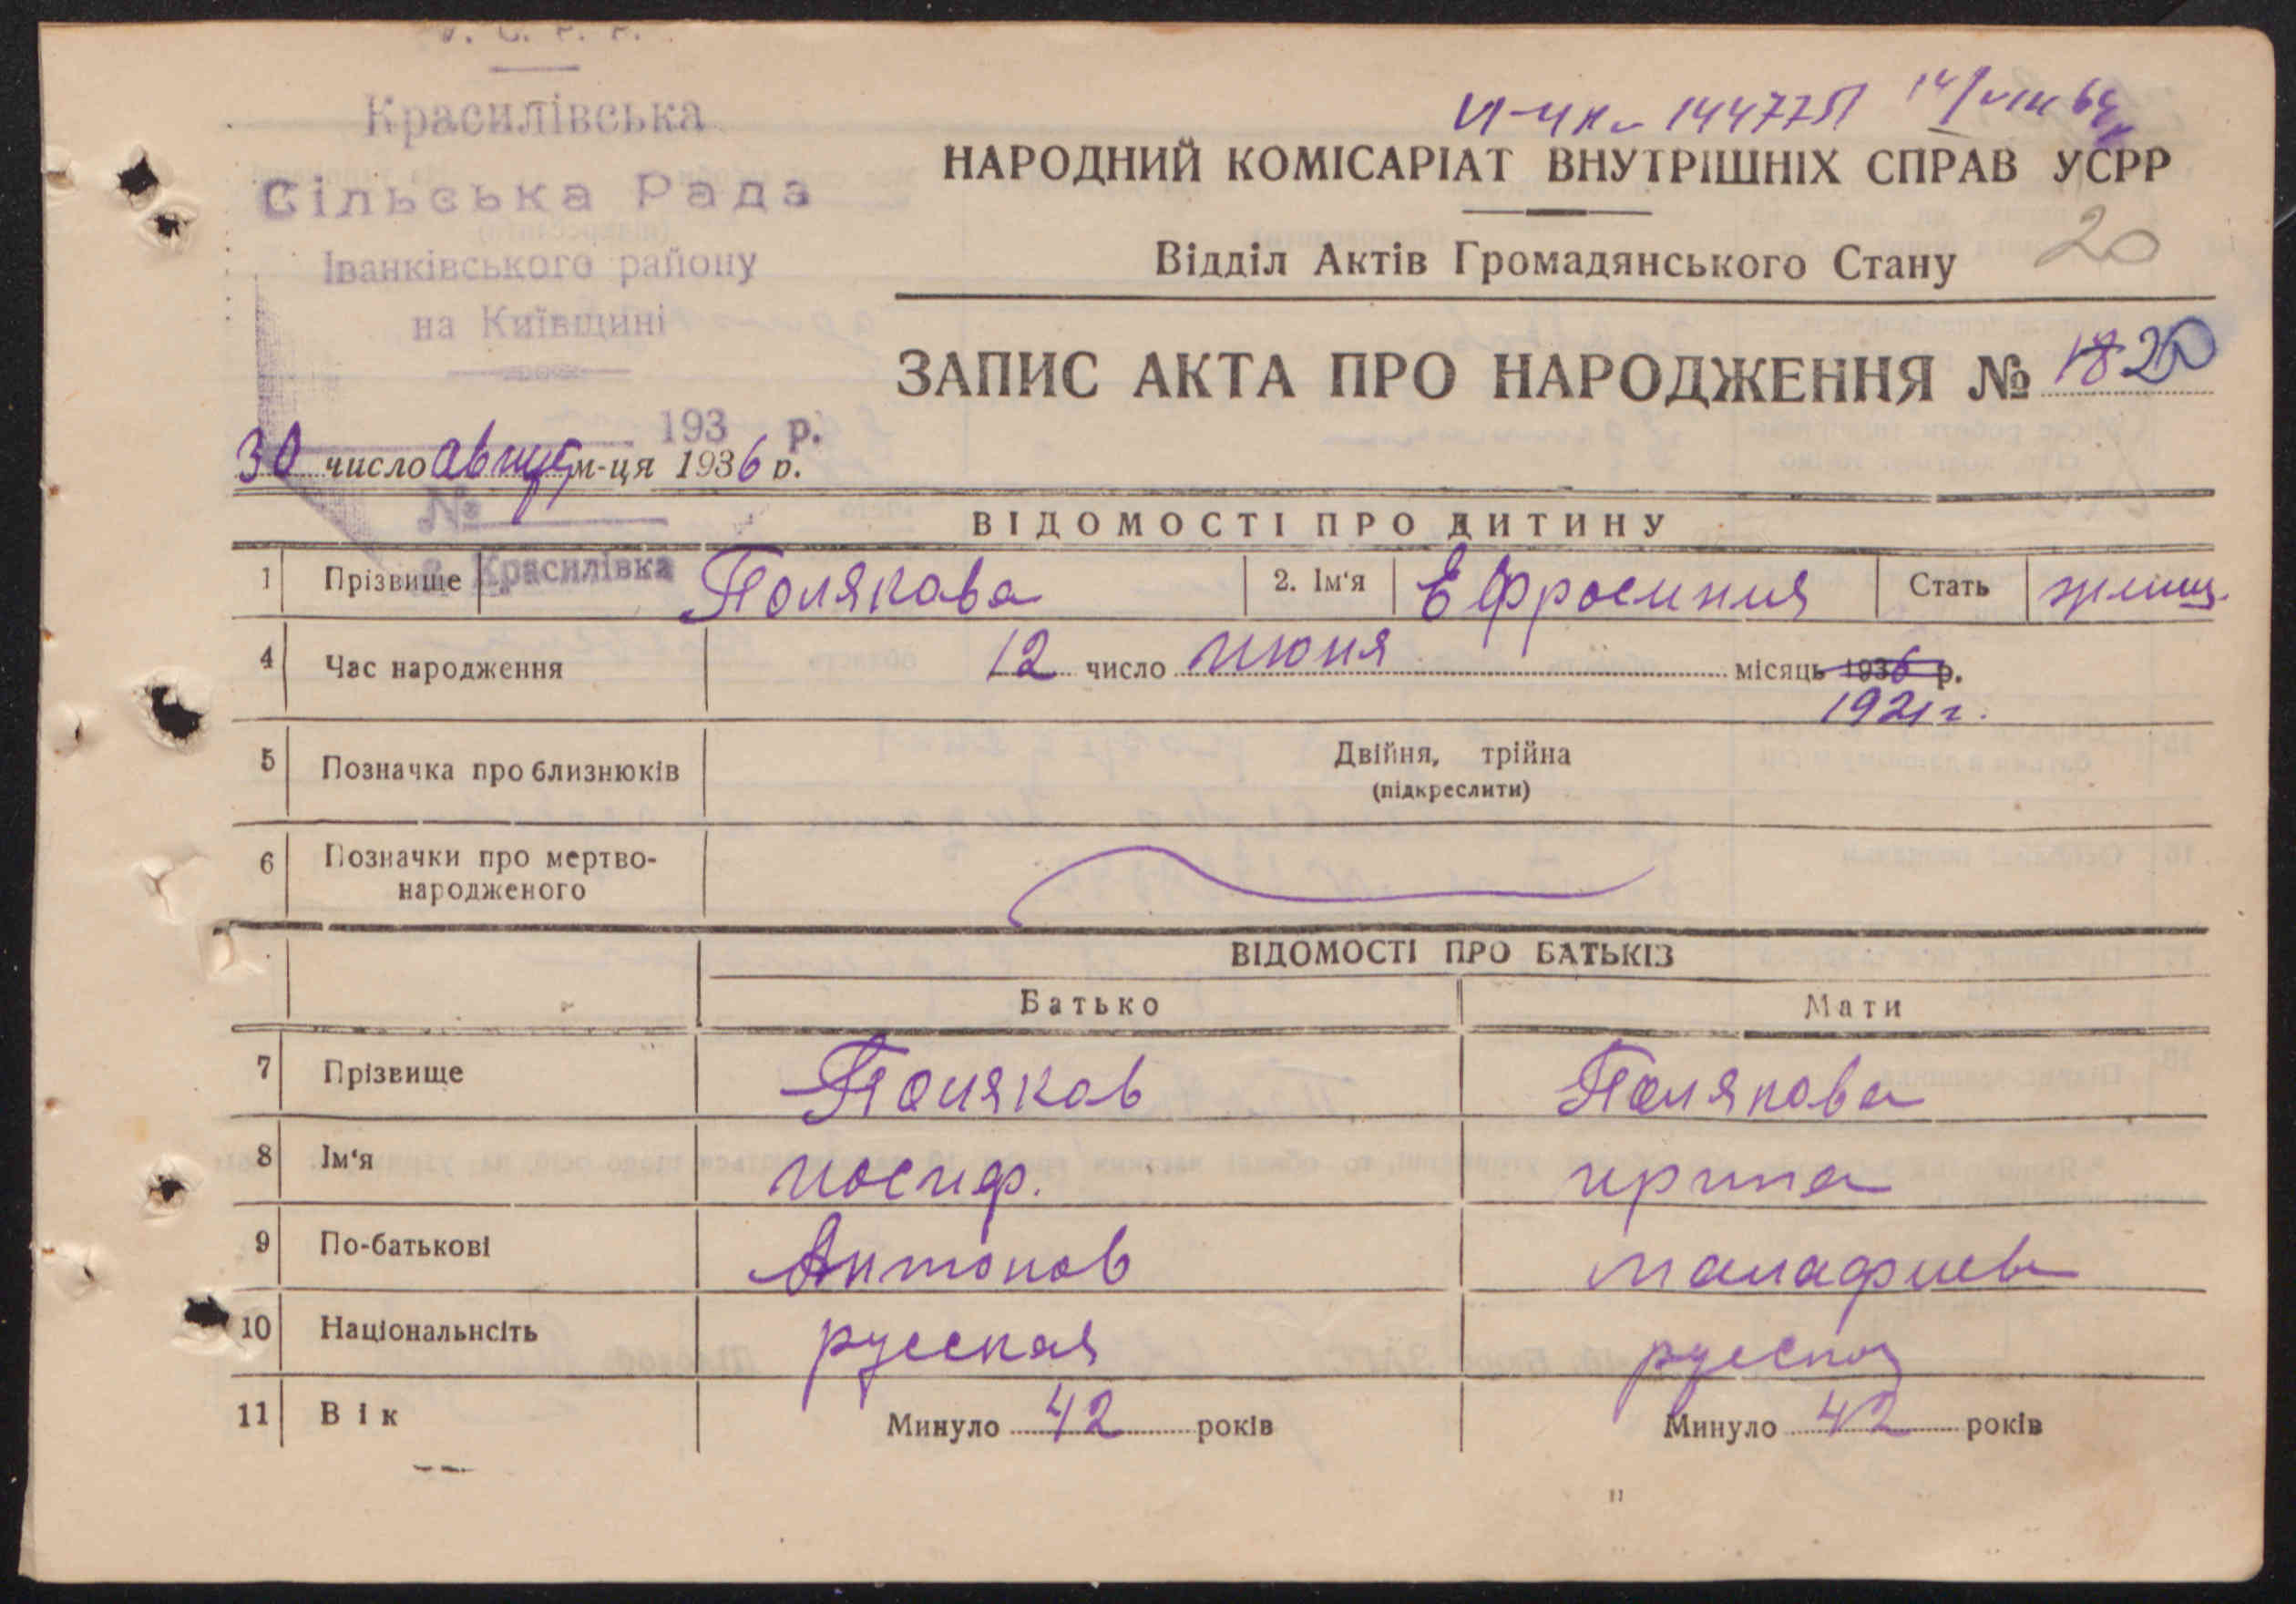 У. С. Р. Р.
Красилівська
Сільська Рада
Іванківського району
на Київщині
193 р.
№
с. Красилівка
14/VIII 64
НАРОДНИЙ КОМІСАРІАТ ВНУТРІШНІХ СПРАВ УСРР
Відділ Актів Громадянського Стану
20
ЗАПИС АКТА ПРО НАРОДЖЕННЯ № 18 20
30 число август м-ця 1936 р.
ВІДОМОСТІ ПРО ДИТИНУ
1 Прізвище Полякова 2. Ім'я Ефросиния Стать женщ.
4 Час народження 12 число июня місяць 1936 р.
1921 г.
5 Позначка про близнюків Двійня, трійна
(підкреслити)
6 Позначки про мертво-
народженого
ВІДОМОСТІ ПРО БАТЬКІВ
Батько Мати
7 Прізвище Поляков Полякова
8 Ім'я иосиф. ирина
9 По-батькові Антонов малафиев
10 Національнсіть русская русская
11 Вік Минуло 42 років Минуло 42 років